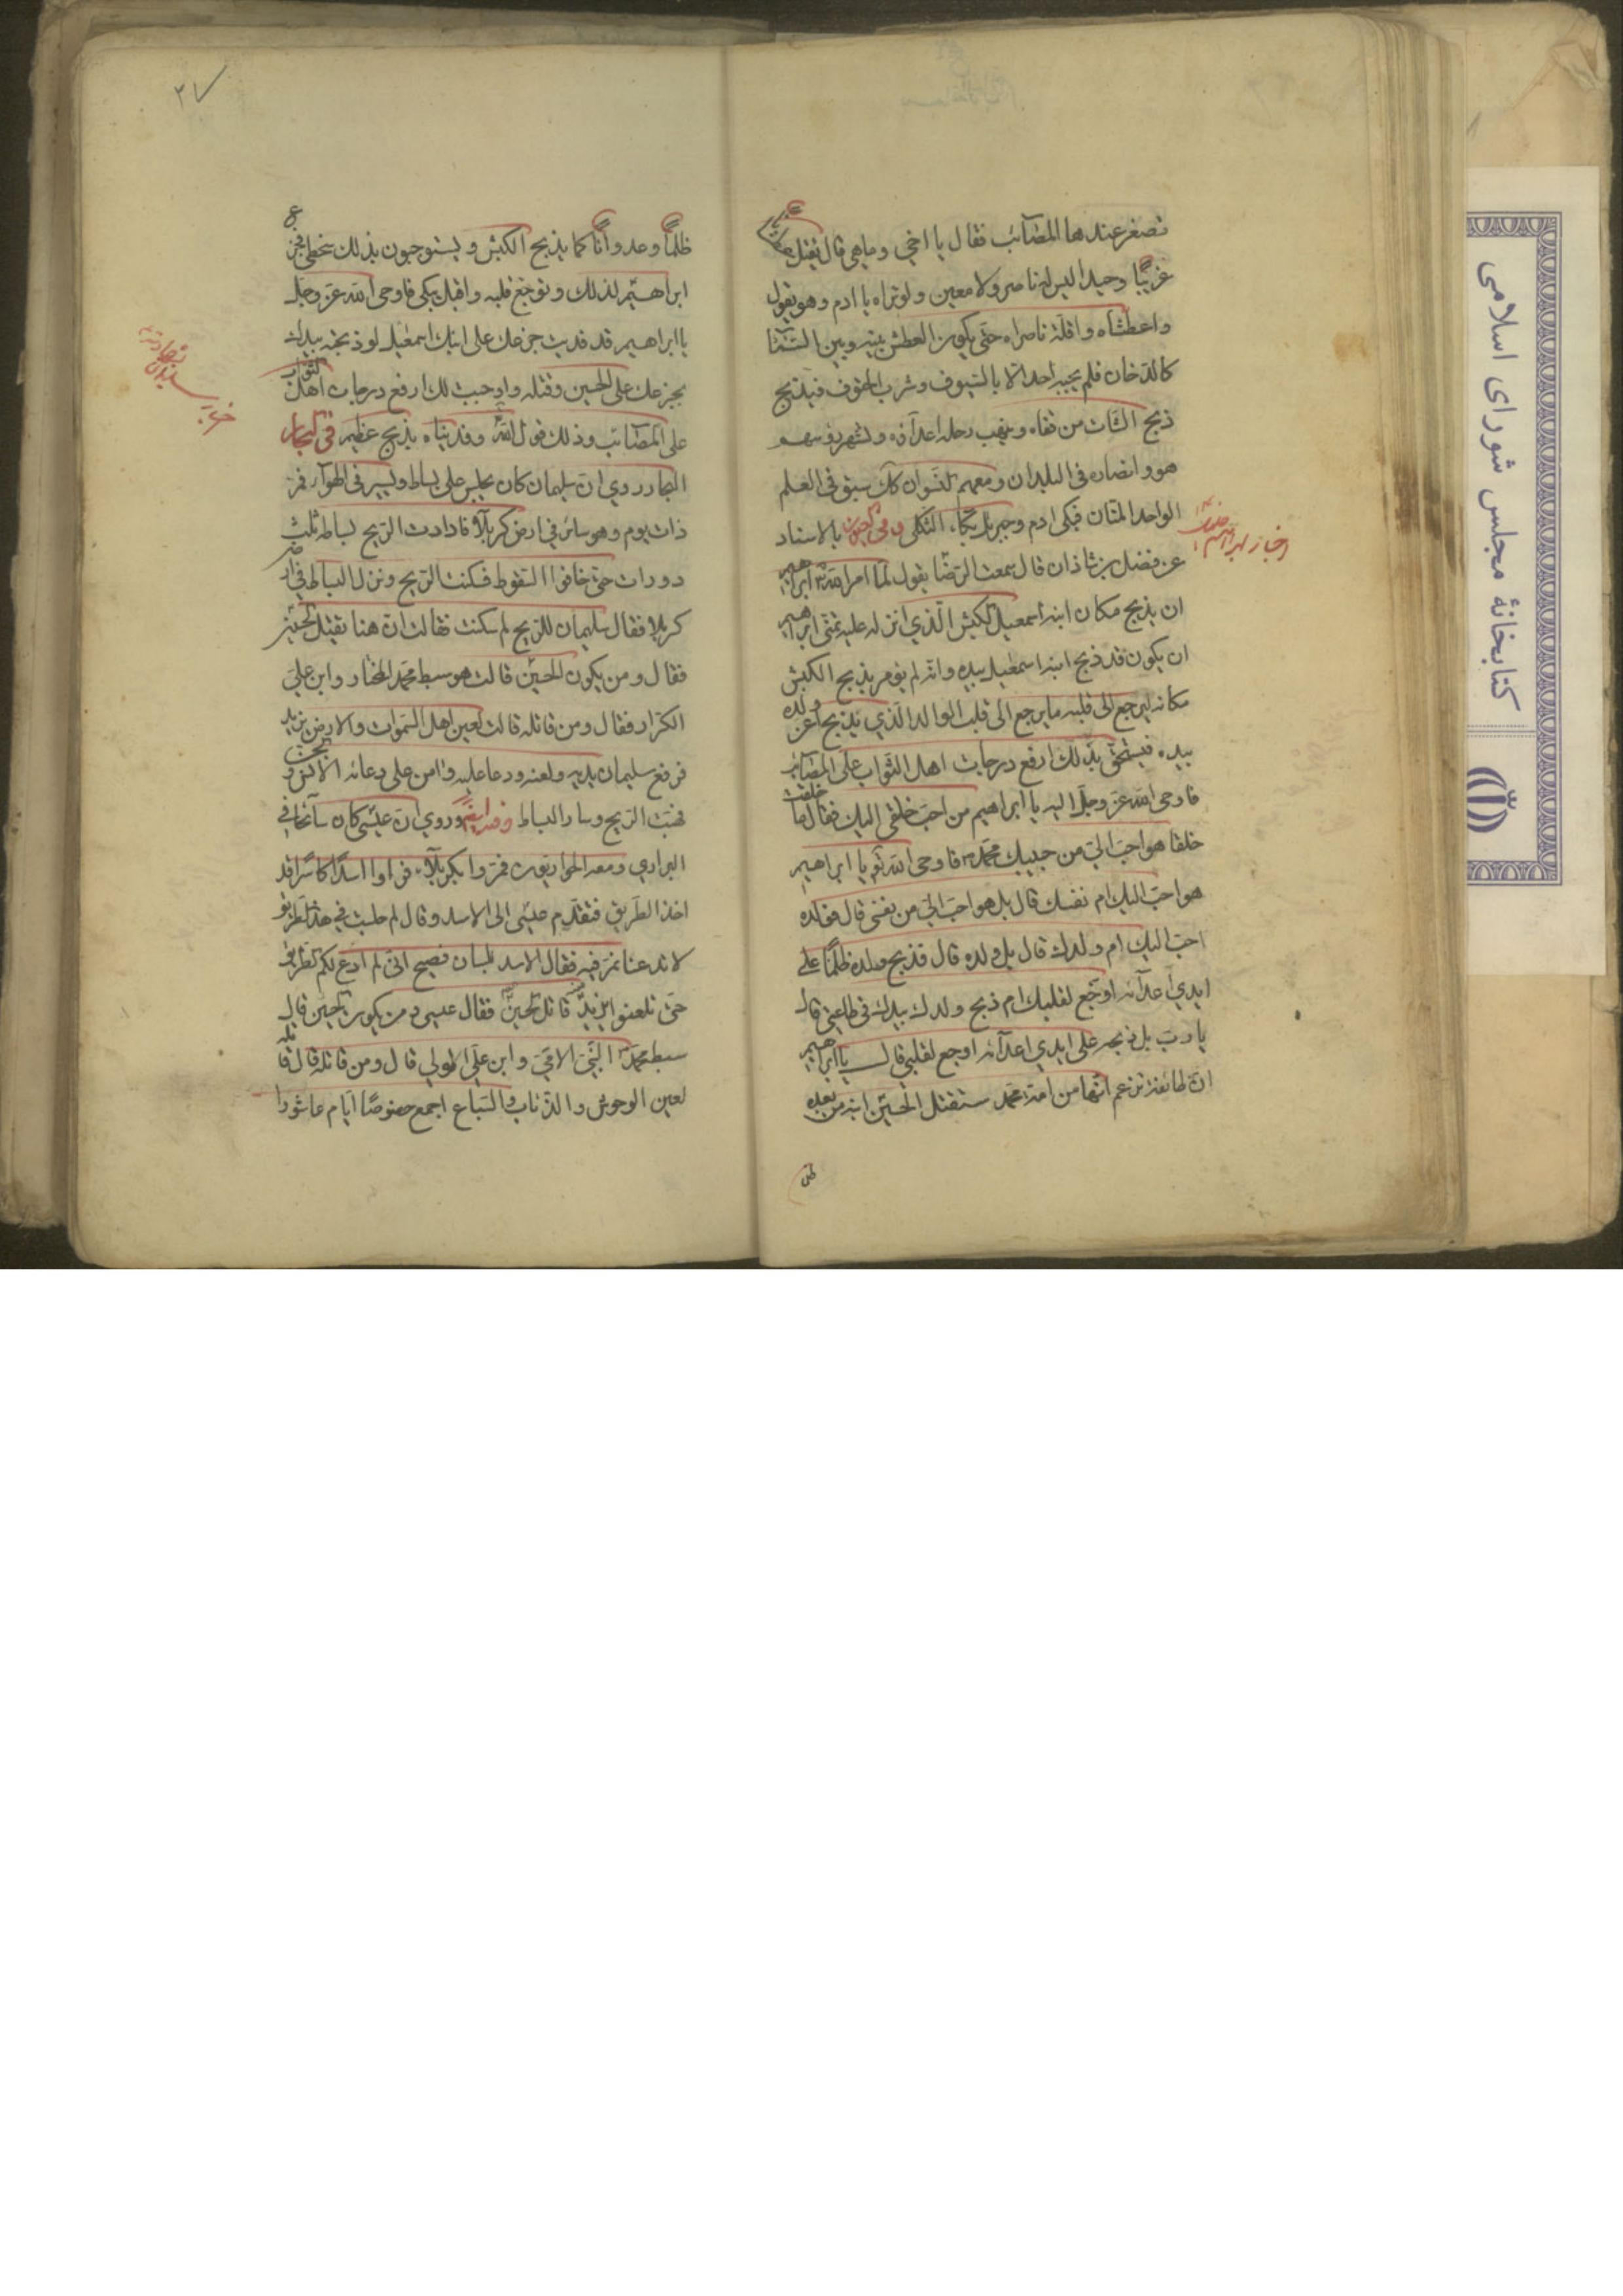 تصغر عندها المصآئب فقال يا اخي وما هي قال يقتل عطشانا
غريبًا وحيدا ليس له ناصر ولا معين ولو تراه يا ادم وهو يقول
واعطشاه واقلّة ناصراه حتّى يكون العطش بينه وبين السّمآء
كالدّخان فلم يجبه احد الّا بالسّيوف وشرب الحتوف فيذبح
ذبح الشّاة من قفاه وينهب رحله اعدآؤه وتشهر رؤسهم
هو وانصاره في البلدان ومعهم النّسوان كذلك سبق في العلم
الواحد المنّان فبكى ادم وجبرئيل بكآء الثّكلى وفي العيون بالاسناد
عن فضل بن شاذان قال سمعت الرّضا يقول لمّا امر الله ابراهيم
ان يذبح مكان ابنه اسمعيل الكبش الّذي انزله عليه تمنّى ابراهيم
ان يكون قد ذبح ابنه اسمعيل بيده وانّه لم يؤمر بذبح الكبش
مكانه ليرجع الى قلبه ما يرجع الى قلب الوالد الّذي يذبح اعزّ ولده
بيده فيستحقّ بذلك ارفع درجات اهل الثّواب على المصآئب
فاوحى الله عزّ وجلّ اليه يا ابراهيم من احبّ خلقي اليك فقال ما خلقت
خلقا هو احبّ اليّ من حبيبك محمّد فاوحى الله اليه يا ابراهيم
هو احبّ اليك ام نفسك قال بل هو احبّ اليّ من نفسي قال فولده
احبّ اليك ام ولدك قال بل ولده قال فذبح ولده ظلمًا على
ايدي اعدآئه اوجع لقلبك ام ذبح ولدك بيدك في طاعتي قال
يا ربّ بل ذبحه على ايدي اعدآئه اوجع لقلبي قال يا ابراهيم
انّ طائفة تزعم انّها من امّة محمّد ستقتل الحسين ابنه من بعده
ظل
اخبار ابراهيم
٢٧
ظلمًا وعدوانًا كما يذبح الكبش ويستوجبون بذلك سخطي فجزع
ابراهيم لذلك وتوجّع قلبه واقبل يبكي فاوحى الله عزّ وجلّ
يا ابراهيم قد فديت جزعك على ابنك اسمعيل لو ذبحته بيدك
بجزعك على الحسين وقتله واوجبت لك ارفع درجات اهل الثّواب
على المصآئب وذلك قول الله وفديناه بذبح عظيم في البحار
البحار روي انّ سليمان كان يجلس على بساط ويسير في الهوآء فمرّ
ذات يوم وهو سائر في ارض كربلآ فادارت الرّيح بساطه ثلث
دورات حتّى خافوا السّقوط فسكنت الرّيح ونزل البساط في ارض
كربلا فقال سليمان للرّيح لم سكنت فقالت انّ هنا يقتل الحسين
فقال ومن يكون الحسين قالت هو سبط محمّد المختار وابن عليّ
الكرّار فقال ومن قاتله قالت لعين اهل السّموات والارض يزيد
فرفع سليمان يديه ولعنه ودعا عليه وامّن على دعائه الانس والجنّ
فهبّت الرّيح وسار البساط وفيه ايضًا وروي انّ عيسى كان سآئحا في
البراري ومعه الحواريّون فمرّوا بكربلآء فراوا اسدًا كاسرًا قد
اخذ الطّريق فتقدّم عيسى الى الاسد وقال لم جلست في هذا الطّريق
لا تدعنا نمرّ فيه فقال الاسد بلسان فصيح انّي لم ادع لكم الطّريق
حتّى تلعنوا يزيد قاتل الحسين فقال عيسى ومن يكون الحسين قال
سبط محمّد النّبيّ الامّيّ وابن عليّ الوليّ قال ومن قاتله قال قاتله
لعين الوحوش والذّئاب والسّباع اجمع خصوصًا ايّام عاشورا
كتابخانهٔ مجلس شورای اسلامی